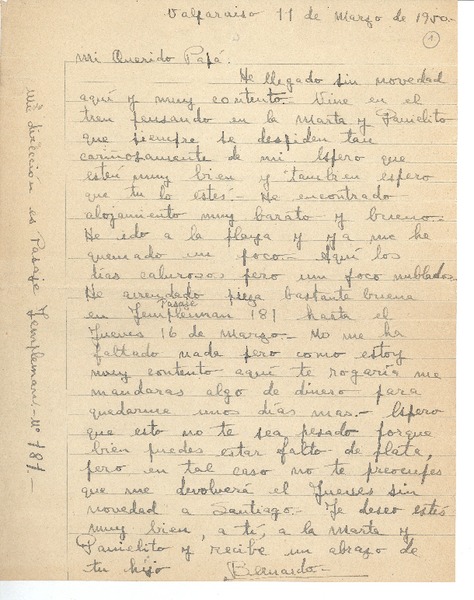 Valparaiso 11 de Marzo de 1950.-
1
Mi Querido Papá.
He llegado sin novedad
aquí y muy contento. Vine en el
tren pensando en la Marta y Panielito
que siempre se despiden tan
cariñosamente de mi Espero que
estén muy bien y tambien espero
que tu lo estés.- He encontrado
alojamiento muy barato y bueno.-
He ido a la playa y ya me he
quemado un poco. Aquí los
días calurosos pero un poco nublados.
He arrendado pieza bastante buena
en Pasaje Templeman 181 hasta el
Jueves 16 de Marzo.- No me ha
faltado nada pero como estoy
muy contento aquí te rogaría me
mandaras algo de dinero para
quedarme unos días mas.- Espero
que esto no te sea pesado porque
bien puedes estar falto de plata,
pero en tal caso no te preocupes
que me devolverá el Jueves sin
novedad a Santiago.- Te deseo estés
muy bien, a tí, a la Marta y
Panielito y recibe un abrazo de
tu hijo Bernardo.-
Mi dirección es Pasaje Templeman.- Nº 181.-